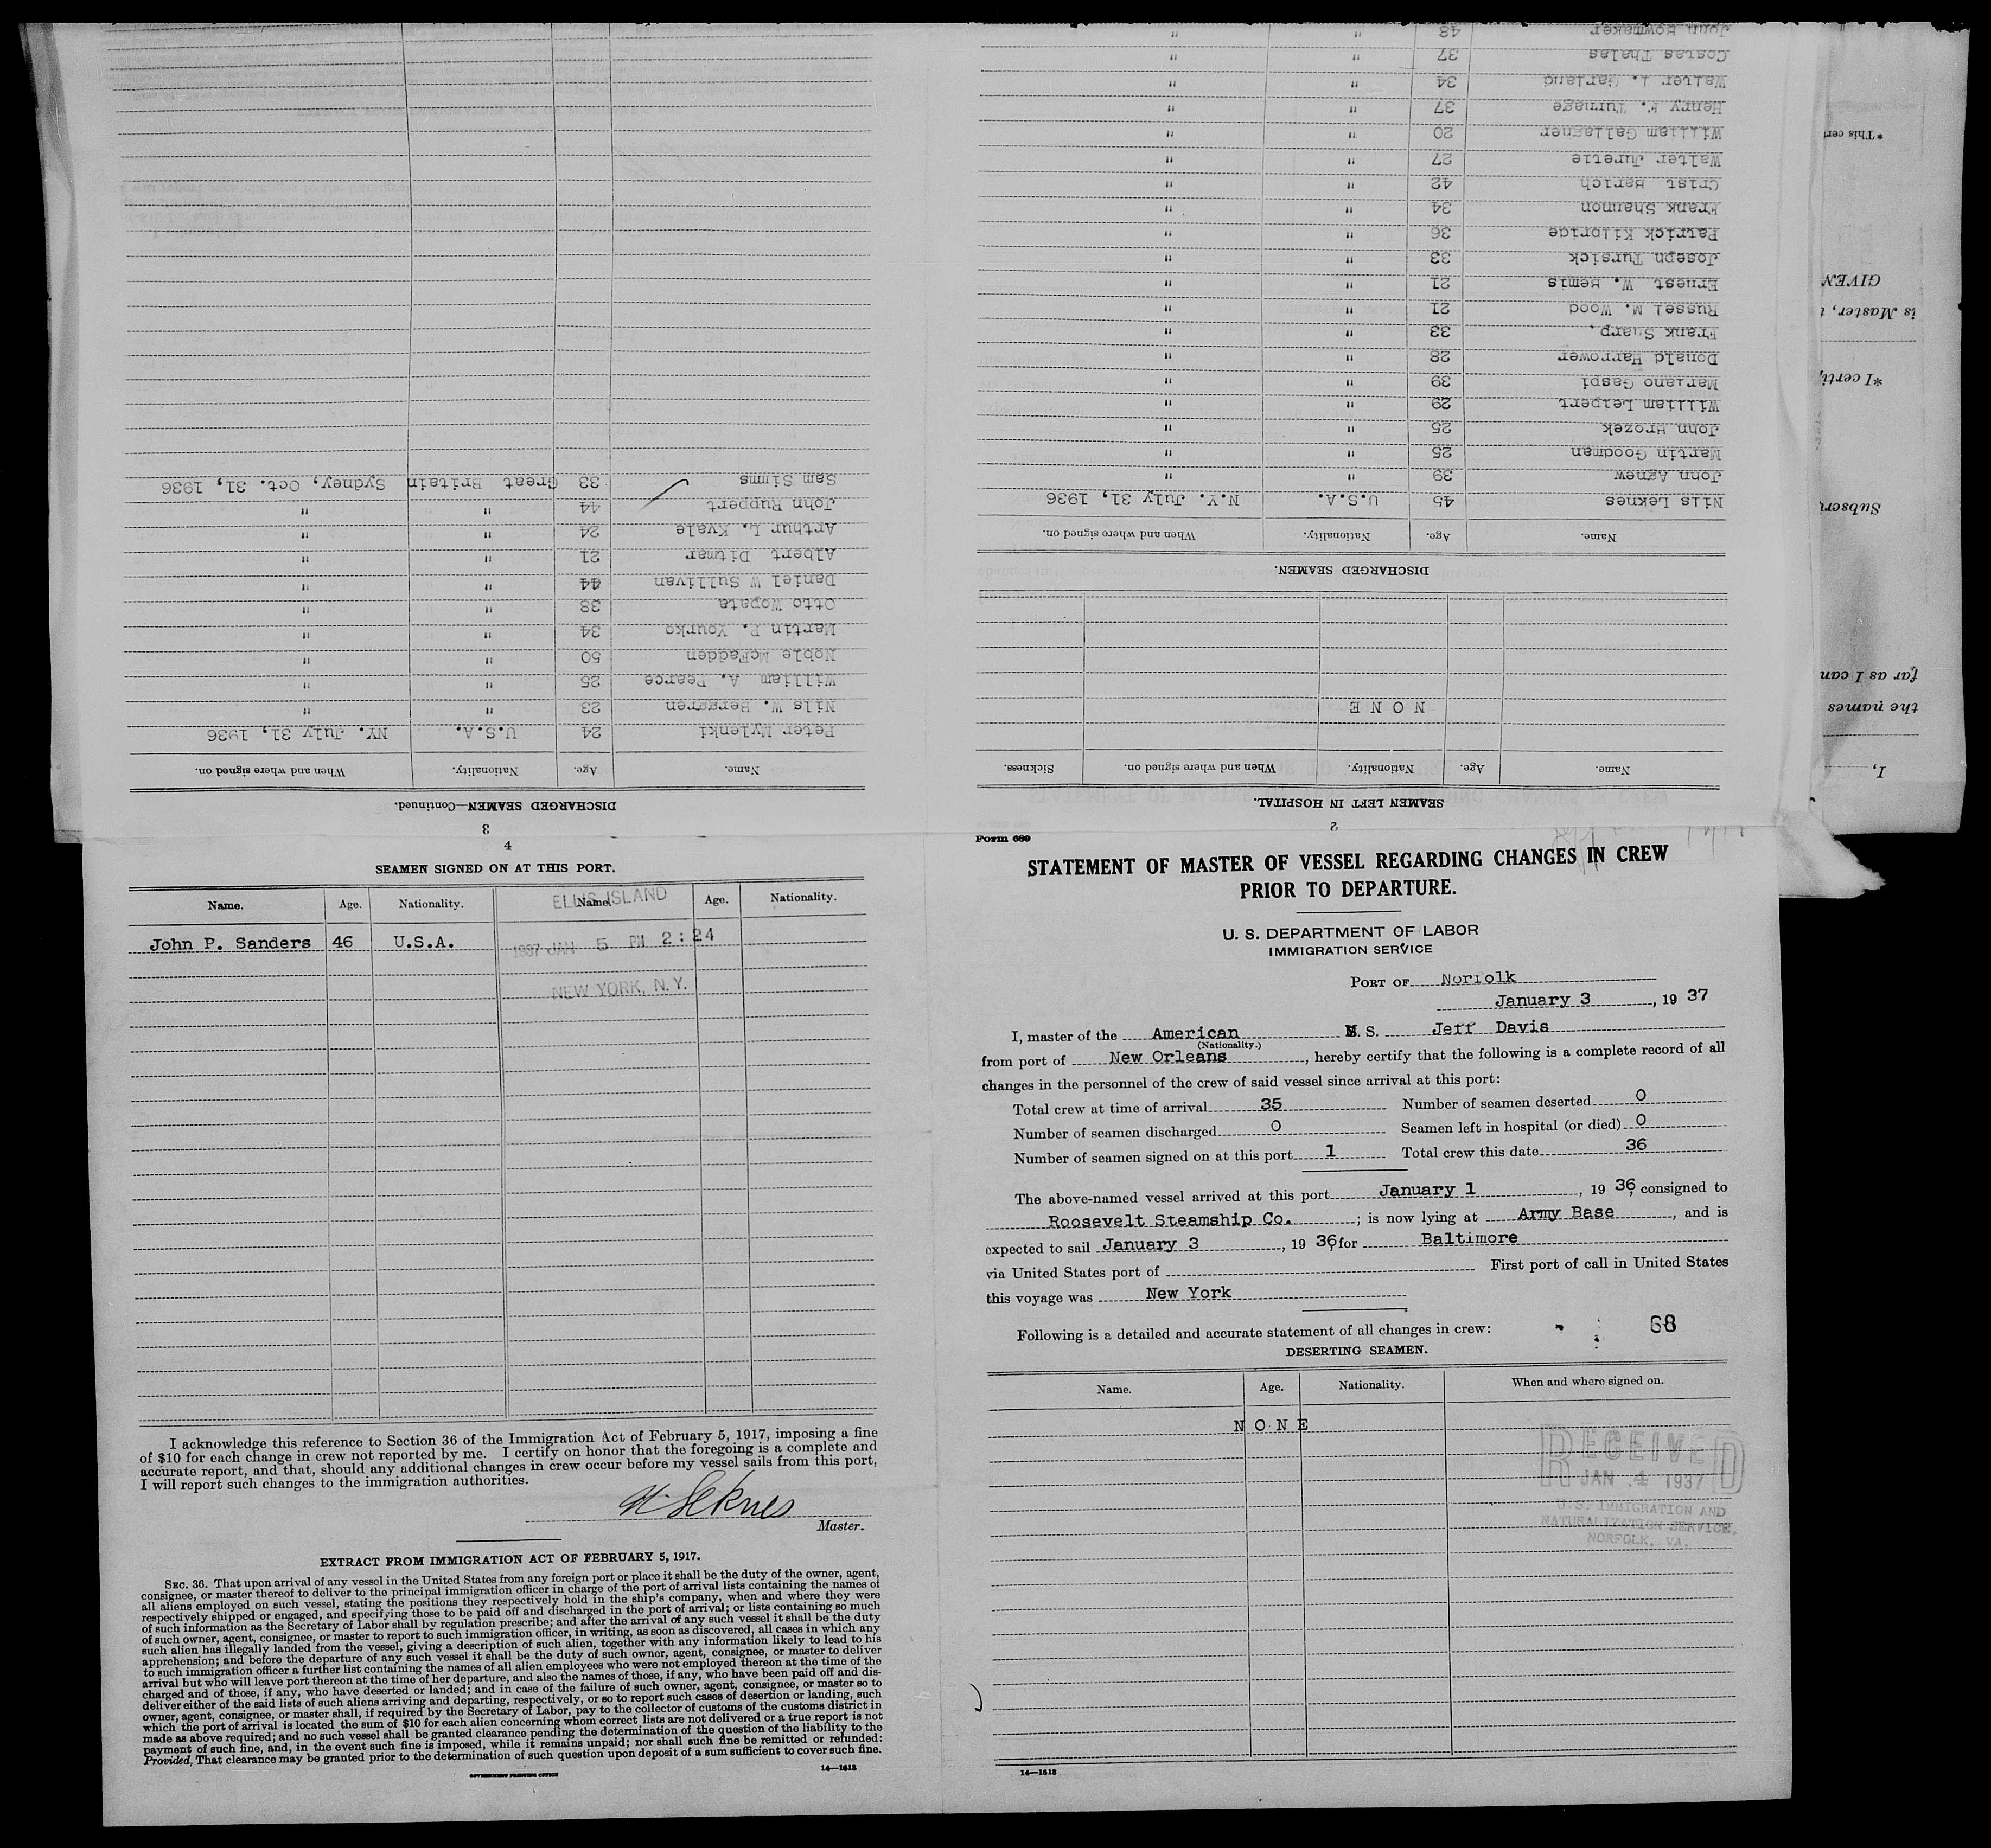 Form 689
STATEMENT OF MASTER OF VESSEL REGARDING CHANGES IN CREW
PRIOR TO DEPARTURE.
U. S. DEPARTMENT OF LABOR
IMMIGRATION SERVICE
PORT OF Norfolk
January 3, 1937
I, master of the American S. Jeff Davis
(Nationality.)
from port of New Orleans, hereby certify that the following is a complete record of all
changes in the personnel of the crew of said vessel since arrival at this port:
Total crew at time of arrival 35 Number of seamen deserted 0
Number of seamen discharged 0 Seamen left in hospital (or died) 0
Number of seamen signed on at this port 1 Total crew this date 36
The above-named vessel arrived at this port January 1, 1936, consigned to
Roosevelt Steamship Co.; is now lying at Army Base, and is
expected to sail January 3, 1936, for Baltimore
via United States port of First port of call in United States
this voyage was New York
Following is a detailed and accurate statement of all changes in crew: 68
DESERTING SEAMEN.
Name. Age. Nationality. When and where signed on.
NONE
RECEIVED
JAN 4 1937
U.S. IMMIGRATION AND
NATURALIZATION SERVICE,
NORFOLK, VA.
14—1613
2
SEAMEN LEFT IN HOSPITAL.
Name. Age. Nationality. When and where signed on. Sickness.
NONE
DISCHARGED SEAMEN.
Name. Age. Nationality. When and where signed on.
Nils Leknes 45 U.S.A. N.Y. July 31, 1936
John Agnew 39 " "
Martin Goodman 25 " "
John Hrozek 25 " "
William Leipert 29 " "
Mariano Gaspi 39 " "
Donald Harrower 28 " "
Frank Sharp. 33 " "
Russel M. Wood 21 " "
Ernest W. Bemis 21 " "
Joseph Tursick 33 " "
Patrick Kilbride 36 " "
Frank Shannon 34 " "
Crist Barich 42 " "
Walter Jurette 27 " "
William Gallagher 20 " "
Henry F. Turnage 37 " "
Walter L. Garland 34 " "
Costas Thalas 37 " "
John Bowmaker 48 " "
3
DISCHARGED SEAMEN—Continued.
Name. Age. Nationality. When and where signed on.
Peter Mylenki 24 U.S.A. NY. July 31, 1936
Nils W. Berggren 23 " "
William A. Pearce 25 " "
Noble McFadden 50 " "
Martin P. Yourko 34 " "
Otto Wopata 38 " "
Daniel W Sullivan 44 " "
Albert Ditmar 21 " "
Arthur L. Kvale 24 " "
John Ruppert 44 " "
Sam Simms 33 Great Britain Sydney, Oct. 31, 1936
4
SEAMEN SIGNED ON AT THIS PORT.
Name. Age. Nationality. Name. Age. Nationality.
John P. Sanders 46 U.S.A.
ELLIS ISLAND
1937 JAN 5 PM 2:24
NEW YORK, N.Y.
I acknowledge this reference to Section 36 of the Immigration Act of February 5, 1917, imposing a fine
of $10 for each change in crew not reported by me. I certify on honor that the foregoing is a complete and
accurate report, and that, should any additional changes in crew occur before my vessel sails from this port,
I will report such changes to the immigration authorities.
N. Leknes
Master.
EXTRACT FROM IMMIGRATION ACT OF FEBRUARY 5, 1917.
SEC. 36. That upon arrival of any vessel in the United States from any foreign port or place it shall be the duty of the owner, agent,
consignee, or master thereof to deliver to the principal immigration officer in charge of the port of arrival lists containing the names of
all aliens employed on such vessel, stating the positions they respectively hold in the ship's company, when and where they were
respectively shipped or engaged, and specifying those to be paid off and discharged in the port of arrival; or lists containing so much
of such information as the Secretary of Labor shall by regulation prescribe; and after the arrival of any such vessel it shall be the duty
of such owner, agent, consignee, or master to report to such immigration officer, in writing, as soon as discovered, all cases in which any
such alien has illegally landed from the vessel, giving a description of such alien, together with any information likely to lead to his
apprehension; and before the departure of any such vessel it shall be the duty of such owner, agent, consignee, or master to deliver
to such immigration officer a further list containing the names of all alien employees who were not employed thereon at the time of the
arrival but who will leave port thereon at the time of her departure, and also the names of those, if any, who have been paid off and dis-
charged and of those, if any, who have deserted or landed; and in case of the failure of such owner, agent, consignee, or master so to
deliver either of the said lists of such aliens arriving and departing, respectively, or so to report such cases of desertion or landing, such
owner, agent, consignee, or master shall, if required by the Secretary of Labor, pay to the collector of customs of the customs district in
which the port of arrival is located the sum of $10 for each alien concerning whom correct lists are not delivered or a true report is not
made as above required; and no such vessel shall be granted clearance pending the determination of the question of the liability to the
payment of such fine, and, in the event such fine is imposed, while it remains unpaid; nor shall such fine be remitted or refunded:
Provided, That clearance may be granted prior to the determination of such question upon deposit of a sum sufficient to cover such fine.
GOVERNMENT PRINTING OFFICE 14—1613
I,
the names
far as I can
Subscri
*I certif
is Master, t
GIVEN
*This cert